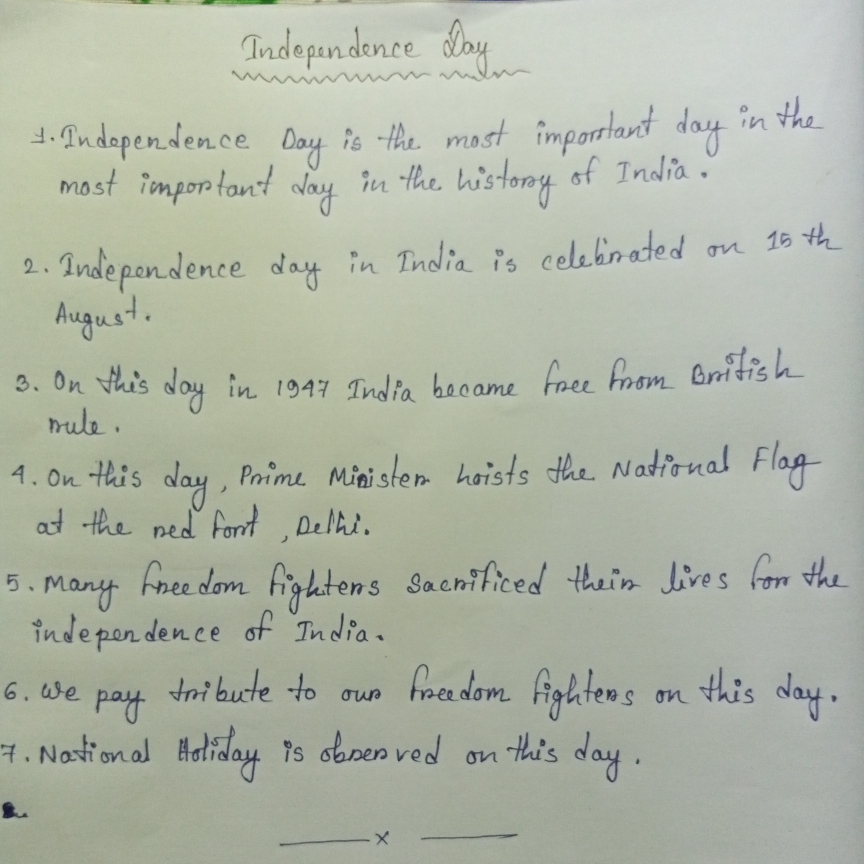 Independence Day
1. Independence Day is the most important day in the
most important day in the history of India.
2. Independence day in India is celebrated on 15 th
August.
3. On this day in 1947 India became free from British
rule.
4. On this day, Prime Minister hoists the National Flag
at the red fort, Delhi.
5. Many freedom fighters sacrificed their lives for the
independence of India.
6. We pay tribute to our freedom fighters on this day.
7. National Holiday is observed on this day.
—— x ——